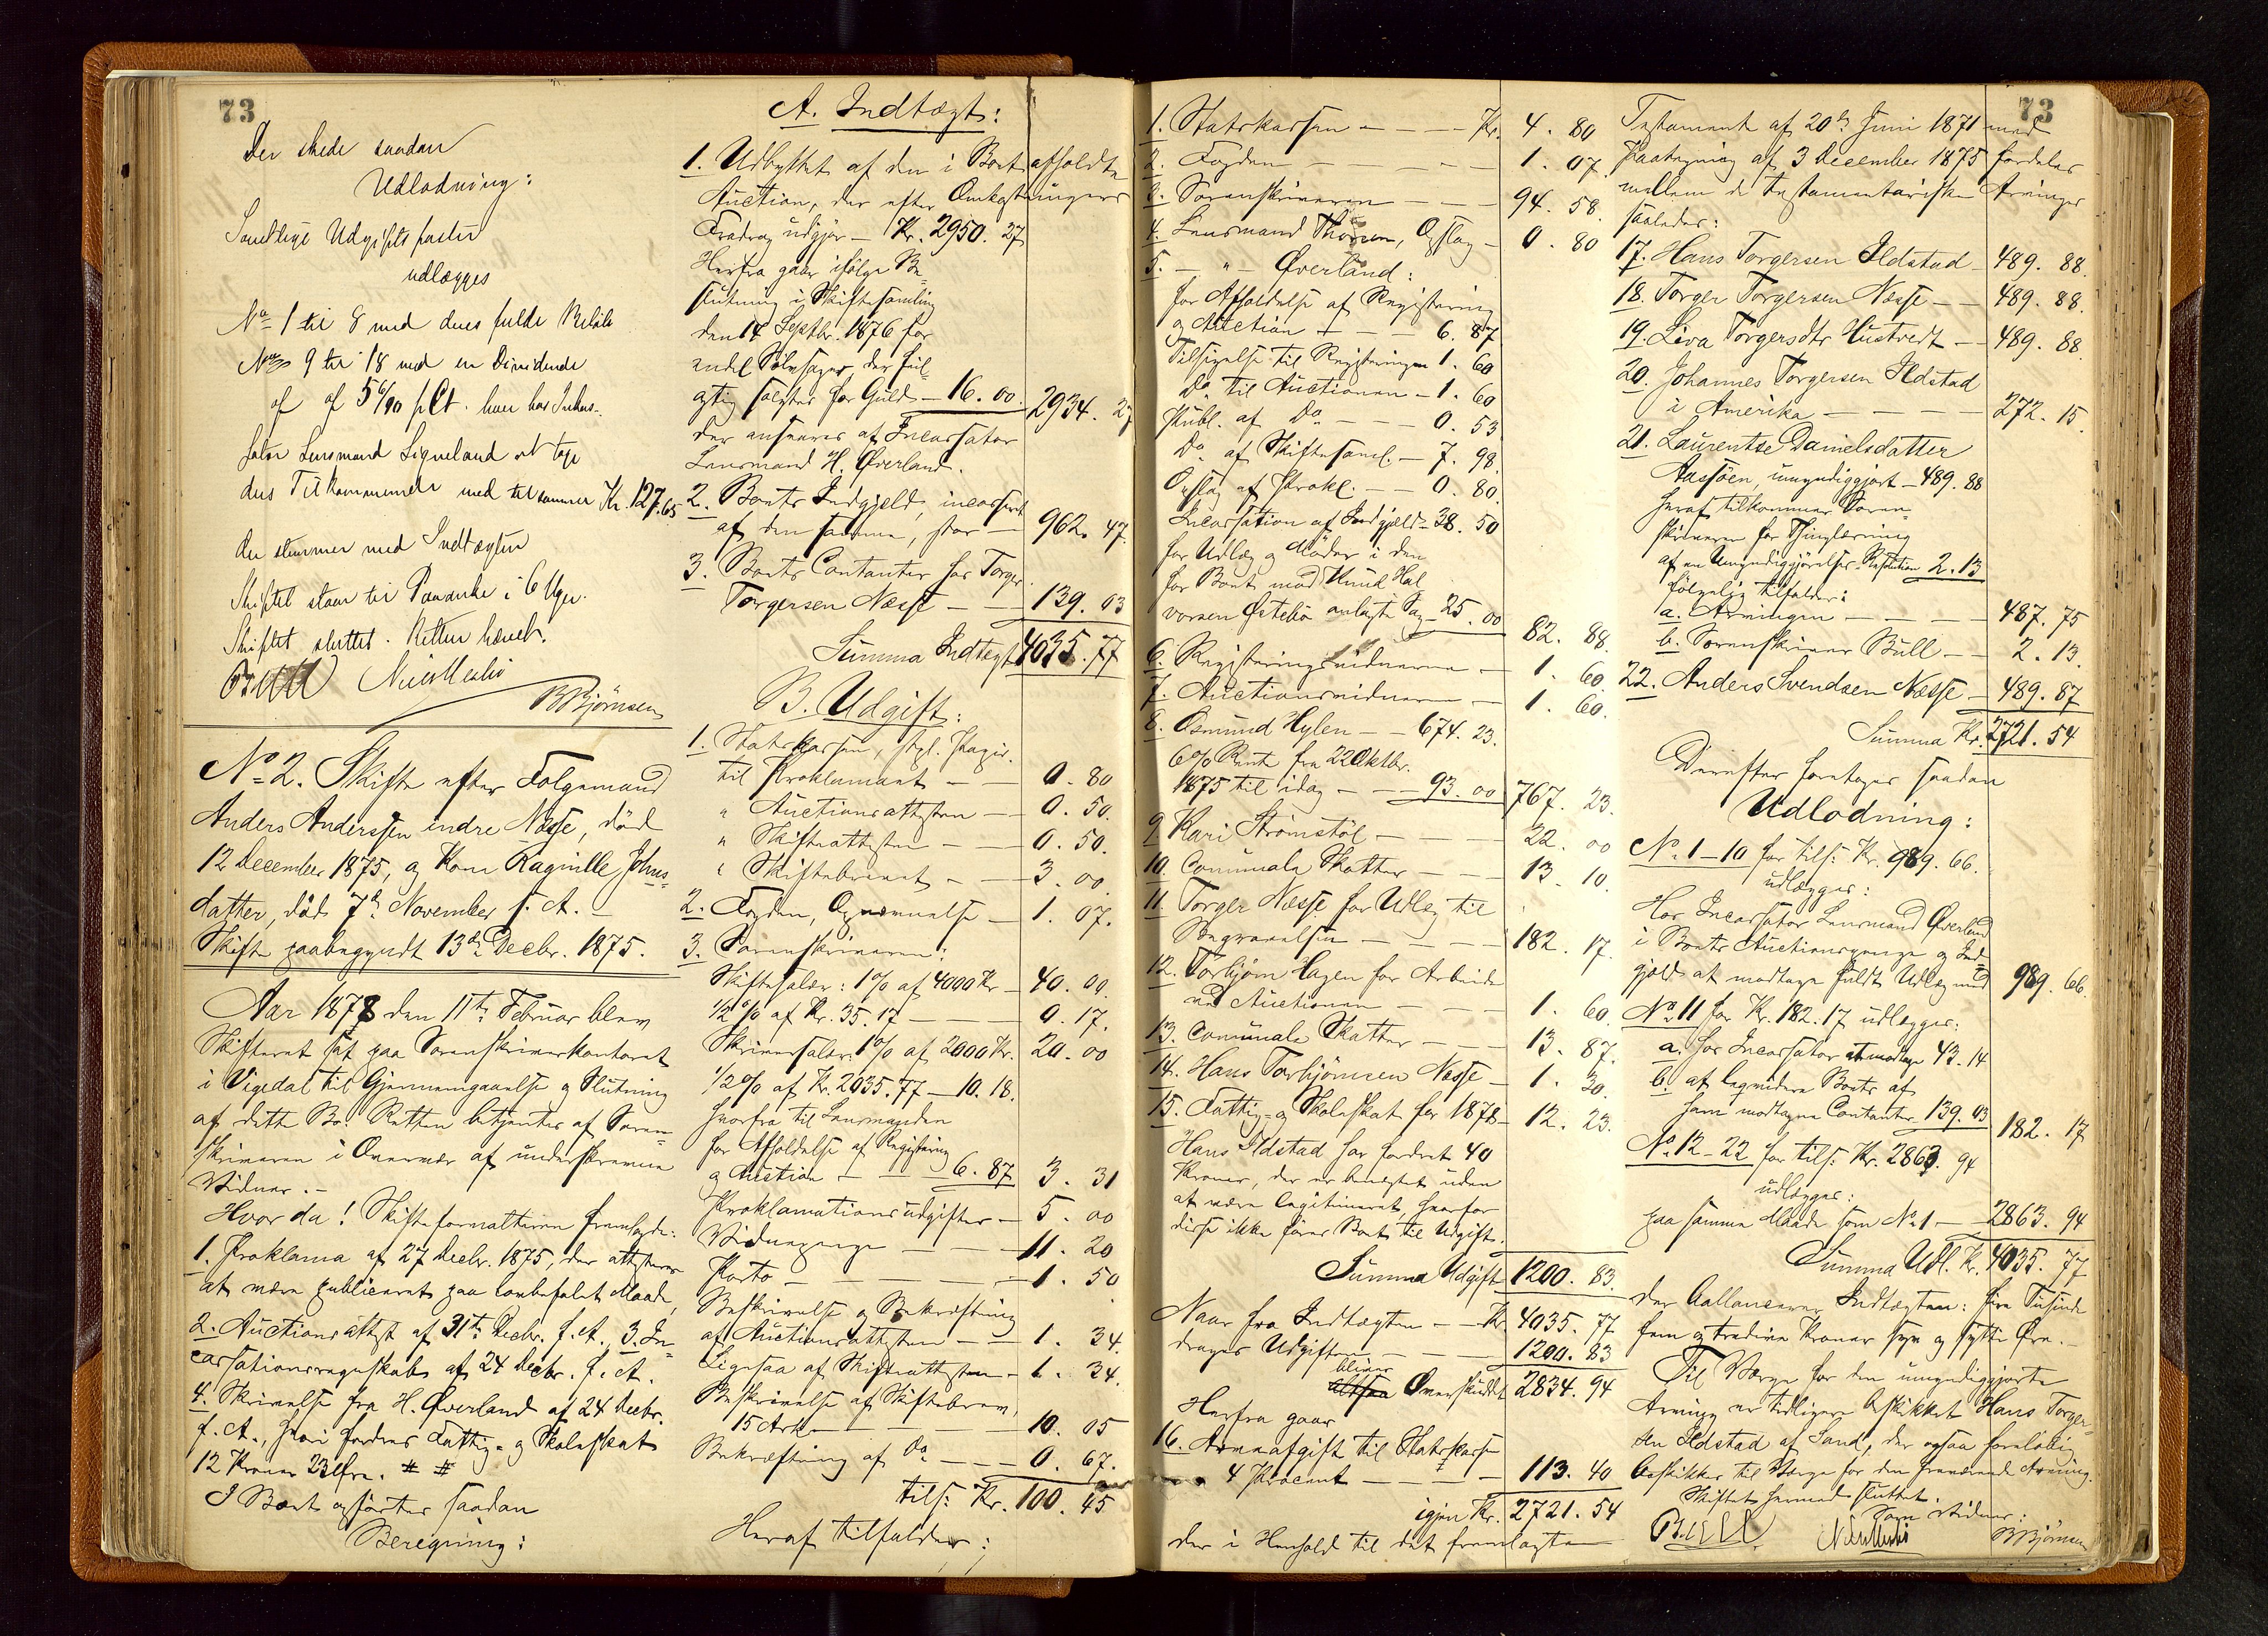 73
Der skede saadan
Udlodning:
Samtlige Udgiftsposter
udlægges
No 1 til 8 med deres fulde Beløb
No 9 til 18 med en Dividende
af af 5 6/90 pCt. hvor hos Inkas-
sator Lensmand Ligneland at tage
des Tilkommende med tilsammen Kr. 127.65
der stemmer med Indtægten
Skiftet staar til Paaanke i 6 Uger.
Skiftet sluttet. Retten hævet.
Bull
B Bjørnsen
No 2. Skifte efter Folgemand
Anders Andersen indre Næsse, død
12 December 1875, og Kone Ragnille Johns-
datter, død 7de November s. A. –
Skifte paabegyndt 13de Decbr. 1875.
Aar 1878 den 11te Februar blev
Skifteret sat paa Sorenskriverkontoret
i Vigedal til Gjennemgaaelse og Slutning
af dette Bo. Retten betjentes af Soren-
skriveren i Overvær af underskrevne
Vidner. –
Hvor da! Skifteforvalteren fremlagde:
1. Proklama af 27 Decbr. 1875, der attesteres
at være publiceret paa lovbefalet Maade,
2. Auctionsattest af 31te Decbr. f. A., 3. In-
cassationsregnskab af 24 Decbr. f. A.
4. Skrivelse fra H. Øverland af 24 Decbr.
f. A., hvori fordres Fattig- og Skoleskat
12 Kroner 23 Øre. # #
I Boet opførtes saadan
Beregning:
A. Indtægt:
1. Udbyttet af den i Boet afholdte
Auction, der efter Omkostningers
Fradrag udgjør – Kr. 2950. 27
Herfra gaar ifølge Be-
slutning i Skiftesamling
den 14 Septbr. 1876 for
endel Sølvsager, der feil-
agtig solgtes for Guld – 16. 00. 2934. 27
der ansvares af Incassator
Lensmand H. Øverland.
2. Boets Indgjeld, incasseret
af den samme, stor – 962. 47.
3. Boets Contanter hos Torger
Torgersen Næsse – – 139. 03
Summa Indtægt 4035. 77
B. Udgift:
1. Statskassen, stpl. Papir.
til Proklamaet – – 0. 80
" Auctionsattesten – 0. 50.
" Skifteattesten – – 0. 50.
" Skiftebrevet – – 3. 00.
2. Fogden, Opnævnelse – 1. 07.
3. Sorenskriveren:
Skiftesalær: 1% af 4000 Kr – 40. 00.
1/2 % af Kr. 35. 77 – – 0. 17.
Skriversalær: 1% af 2000 Kr. 20. 00
1/2 % af Kr. 2035. 77 – 10. 18.
hvorfra til Lensmanden
for Afholdelse af Registering
og Auction – – 6. 87 3. 31
Proklamationsudgifter – 5. 00
Vidnepenge – – – 11. 20
Porto – – – – 1. 50
Beskrivelse og Bekræftning
af Auctionsattesten – – 1. 34.
Ligesaa af Skifteattesten – 1. 34.
Beskrivelse af Skiftebrev,
15 Ark – – – 10. 05
Bekræftning af Do – – – 0. 67.
tils: Kr. 100. 45
Heraf tilfalder:
73
1. Statskassen – – – Kr. 4. 80
2. Fogden – – – – 1. 07.
3. Sorenskriveren – – – 94. 58.
4. Lensmand Thorsen, Opslag – 0. 80
5. – " – Øverland:
for Afholdelse af Registering
og Auction – – – 6. 87
Tilsigelse til Registeringen 1. 60
Do til Auctionen – 1. 60
Publ. af Do – – – 0. 53
Do af Skiftesaml. – 7. 98.
Opslag af Prokl. – – 0. 80.
Incassation af Indgjeld – 38. 50
for Udlæg og Møder i den
for Boet mod Knud Hal
vorsen Østebø anlagte Sag – 25. 00 82. 88.
6. Registeringsvidnerne – 1. 60.
7. Auctionsvidnerne – 1. 60.
8. Osmund Hylen – – 674. 23.
6% Rente fra 22 Oktbr.
1875 til idag – – 93. 00 767. 23.
9. Kari Strømstøl – – – 22. 00
10. Communale Skatter – – 13. 10.
11. Torger Næsse for Udlæg til
Begravelsen – – – – 182. 17.
12. Torbjørn Hagen for Arbeide
ved Auctionen – – – 1. 60.
13. Communale Skatter – – 13. 87.
14. Hans Torbjørnsen Næsse – 1. 30.
15. Fattig- og Skoleskat for 1878 – 12. 23.
Hans Ildstad har fordret 40
Kroner, der er benegtet uden
at være legitimeret, hvorfor
disse ikke føres Boet til Udgift.
Summa Udgift 1200. 83.
Naar fra Indtægten – – Kr. 4035. 77
drages Udgiften – – – 1200. 83
bliver
altsaa Overskuddet 2834. 94
Herfra gaar
16. Arveafgift til Statskassen
4 Procent – – – – 113. 40
igjen Kr. 2721. 54
der i Henhold til det fremlagte
Testament af 20de Juni 1871 med
Paategning af 3 December 1875 fordeles
mellem de testamentariske Arvinger
saaledes:
17. Hans Torgersen Ildstad – 489. 88.
18. Torger Torgersen Næsse – – 489. 88.
19. Liva Torgersdtr Hustvedt – – 489. 88.
20. Johannes Torgersen Ildstad
i Amerika – – – – 272. 15.
21. Laurentse Danielsdatter
Aassøen, umyndiggjort – 489. 88
heraf tilkommer Soren-
skriveren for Thinglæsning
af en Umyndiggjørelses-Resolution 2. 13
følgelig tilfalder:
a. Arvingen – – – – 487. 75
b. Sorenskriver Bull – – 2. 13.
22. Anders Svendsen Næsse – 489. 87
Summa Kr. 2721. 54
Derefter foretoges saadan
Udlodning:
No 1–10 for tils: Kr. 989. 66.
udlægges:
Hos Incassator Lensmand Øverland
i Boets Auctionspenge og Ind-
gjeld at modtage fuldt Udlæg med 989. 66.
No 11 for Kr. 182. 17 udlægges:
a. hos Incassator at modtage 43. 14
b. at liqvidere Boets af
ham modtagne Contanter 139. 03 182. 17
No 12–22 for tils: Kr. 2863. 94
udlægges:
paa samme Maade som No 1 – 2863. 94
Summa Udl. Kr. 4035. 77
der ballancerer Indtægten: fire Tusinde
fem og tredive Kroner syv og sytti Øre. –
Til Værge for den umyndiggjorte
Arving er tidligere beskikket Hans Torger-
sen Ildstad af Sand, der ogsaa foreløbig
beskikkes til Værge for den fraværende Arving.
Skiftet hermed sluttet.
Som Vidner:
Bull. B Bjørnsen